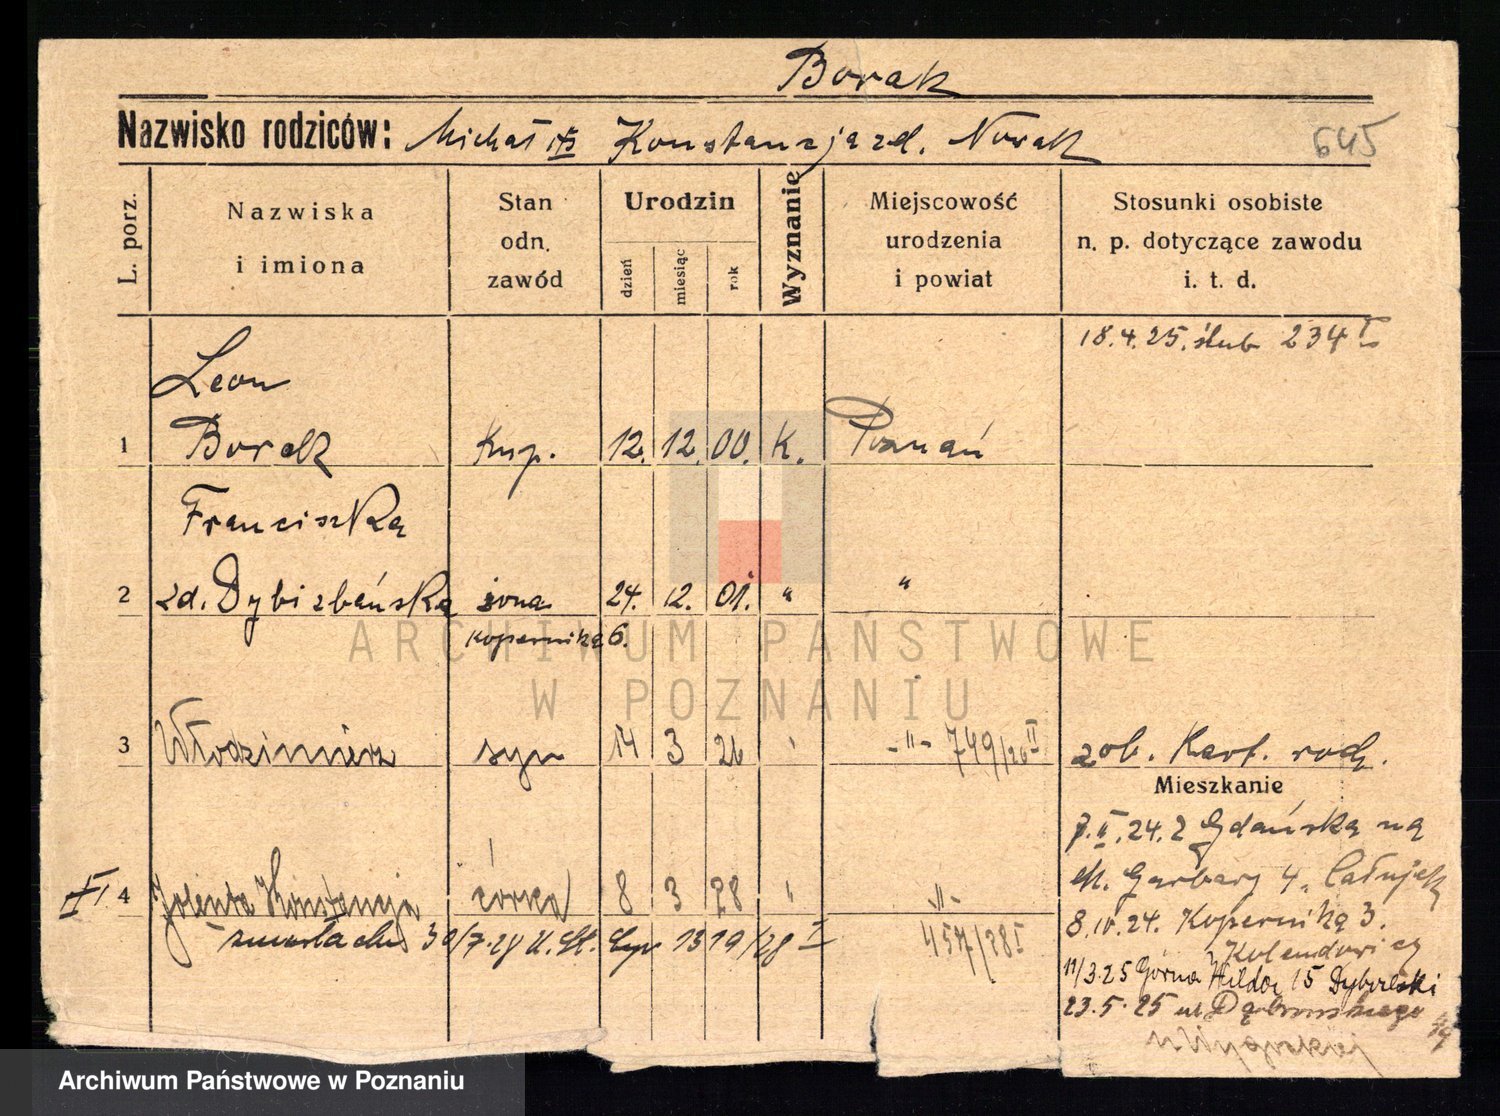 Borak
Nazwisko rodziców: Michał i Konstancja zd. Nowak
645
L. porz.
Nazwiska
i imiona
Stan
odn.
zawód
Urodzin
dzień
miesiąc
rok
Wyznanie
Miejscowość
urodzenia
i powiat
Stosunki osobiste
n. p. dotyczące zawodu
i. t. d.
18.4.25. ślub 234 I
Leon
1 Borak Kup. 12. 12. 00. K. Poznań
Franciszka
2 zd. Dybizbańska żona 24. 12. 01. " "
Kopernika 6.
3 Włodzimierz syn 14 3 26 " -"- 749/26 II
zob. Kart. rodz.
Mieszkanie
7.II.24. z Gdańska na
Garbary 4.
4 Jolenta Konstancja córka 8 3 28 " -"-
457/28 I
zmarła dn 30/7.28 1319/28 I
8.IV 24. Kopernika 3.
11/3.25 Górna Wilda 15
23.5.25 ul Dąbrowskiego
ARCHIWUM PAŃSTWOWE
W POZNANIU
Archiwum Państwowe w Poznaniu